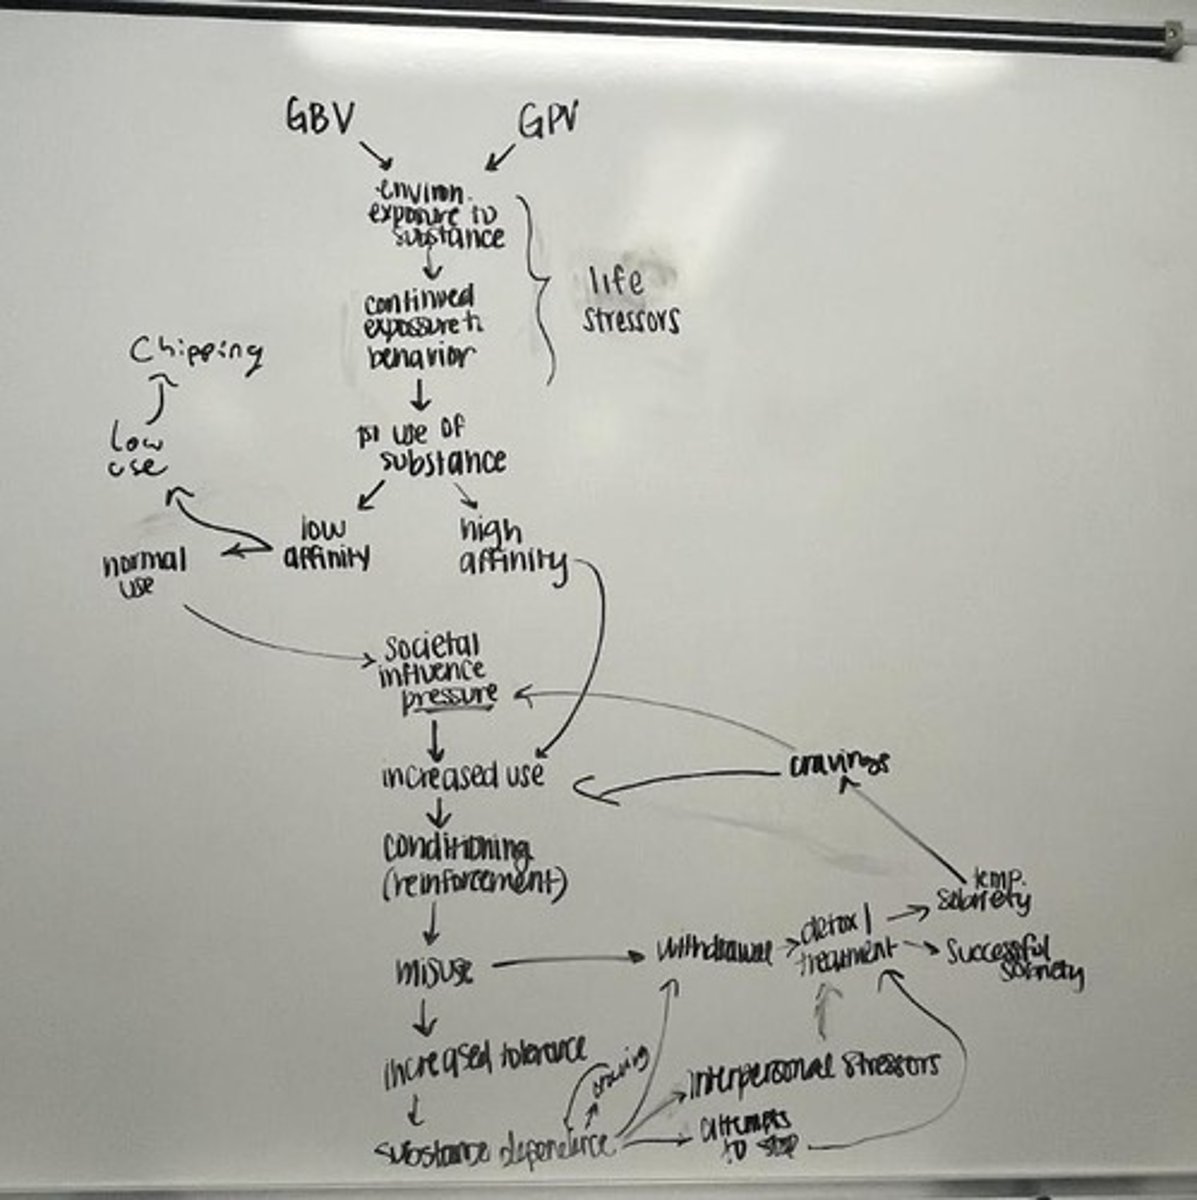 GBV
GPV
environ.
exposure to
substance
life
stressors
continued
expossure to
behavior
Chipping
low
use
1st use of
substance
low
affinity
high
affinity
normal
use
societal
influence
pressure
increased use
cravings
conditioning
(reinforcement)
temp.
sobriety
misuse
withdrawal
detox/
treatment
Successful
sobriety
increased tolerance
craving
interpersonal stressors
substance dependence
attempts
to stop